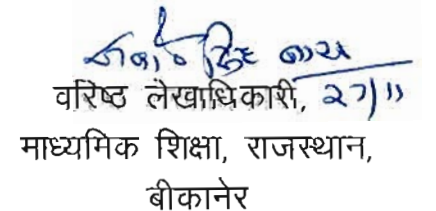 वरिष्ठ लेखाधिकारी, २७/११
माध्यमिक शिक्षा, राजस्थान,
बीकानेर